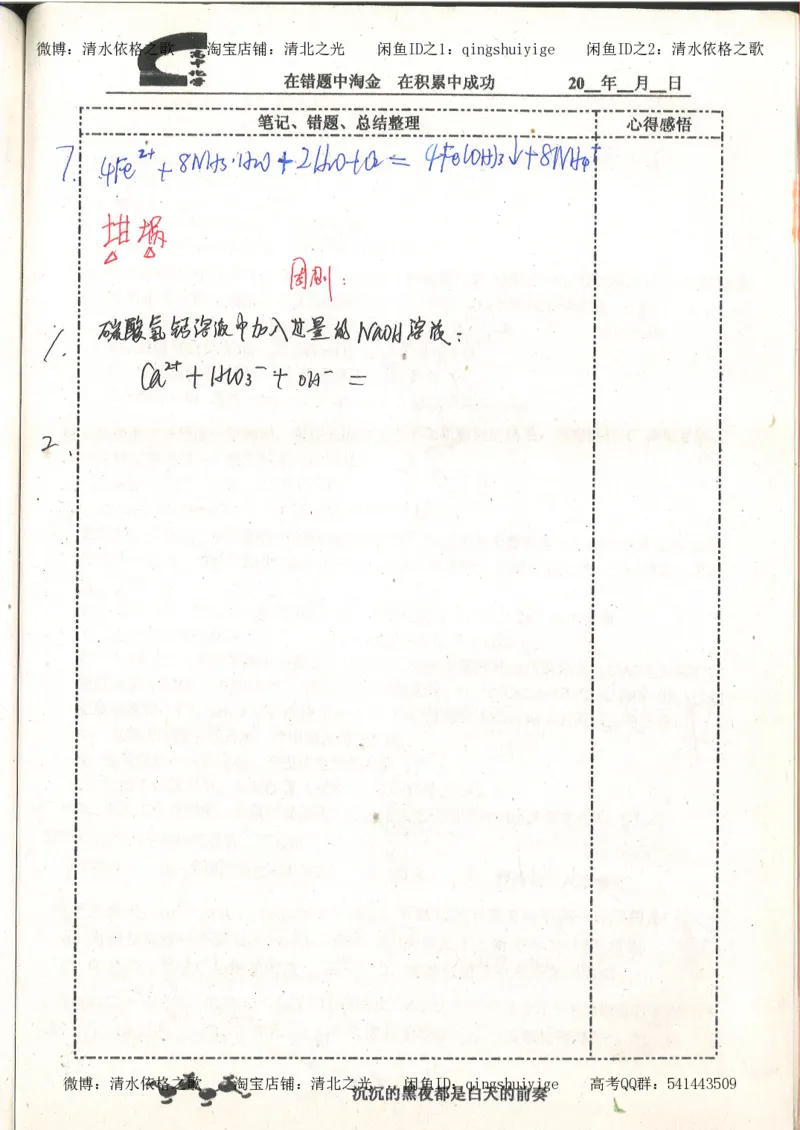 微博：清水依格之歌 淘宝店铺：清北之光 闲鱼ID之1：qingshuiyige 闲鱼ID之2：清水依格之歌
高中化学
在错题中淘金 在积累中成功 20__年__月__日
笔记、错题、总结整理 心得感悟
7. 4Fe²⁺ + 8NH₃·H₂O + 2H₂O + O₂ = 4Fe(OH)₃↓ + 8NH₄⁺
坩埚
周刷：
1. 碳酸氢钙溶液中加入过量的NaOH溶液：
Ca²⁺ + HCO₃⁻ + OH⁻ =
2.
微博：清水依格之歌 淘宝店铺：清北之光 闲鱼ID：qingshuiyige 高考QQ群：541443509
沉沉的黑夜都是白天的前奏